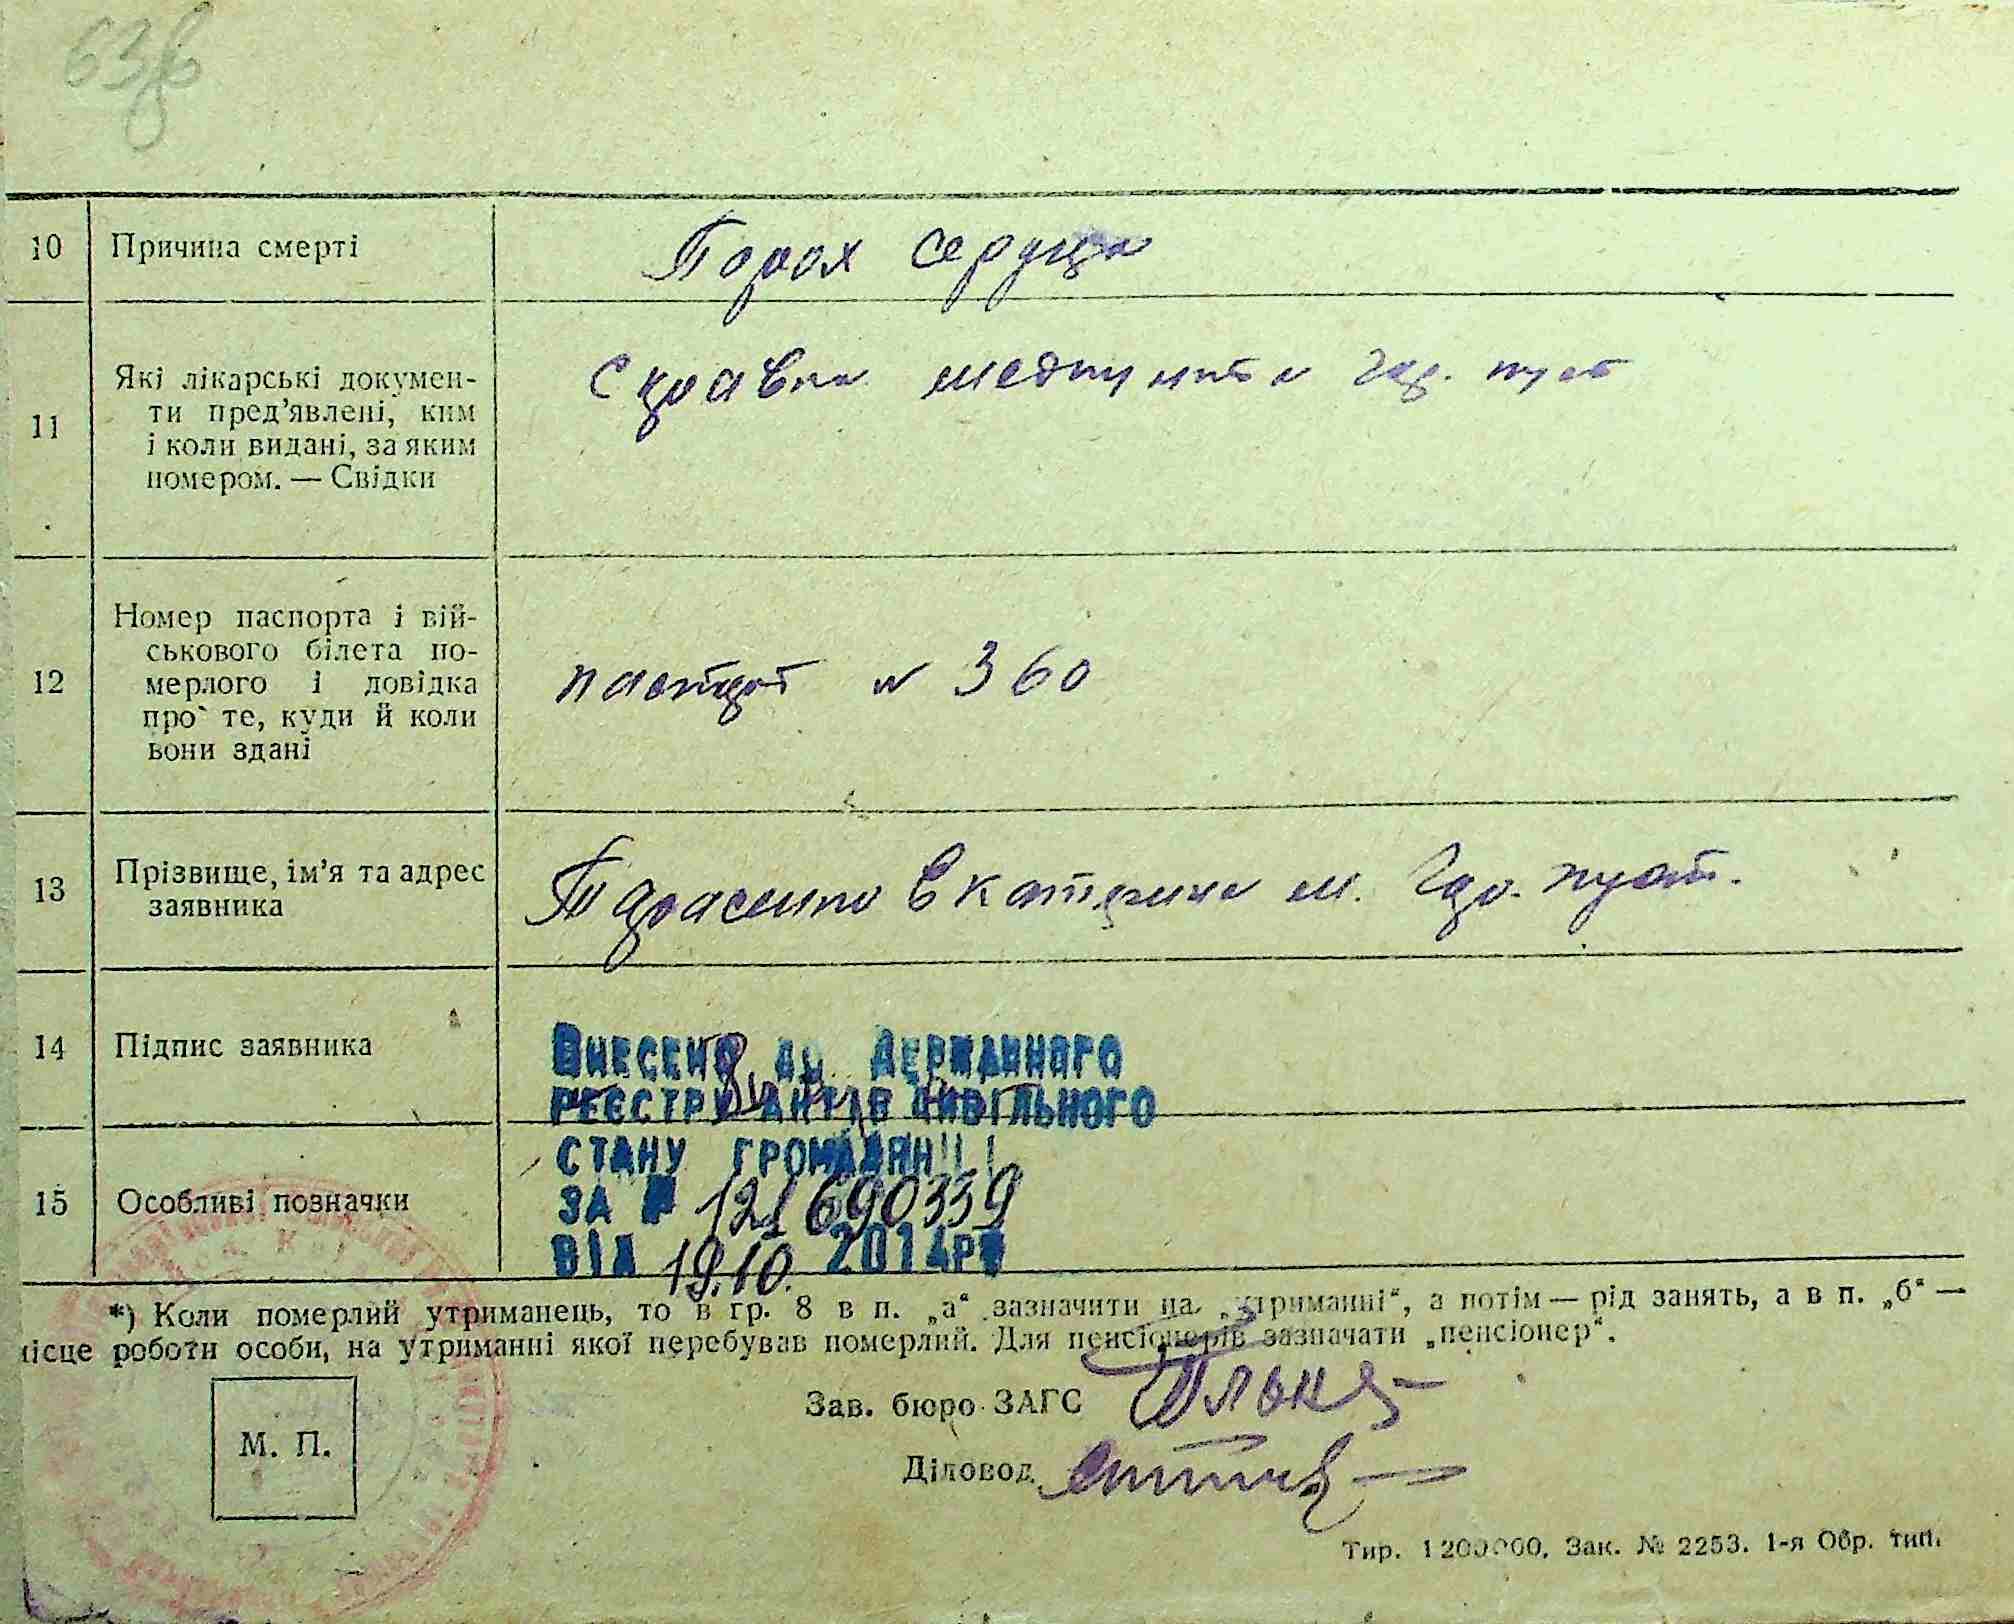 63зв
10 Причина смерті Порок сердца
11 Які лікарські докумен-
ти пред’явлені, ким
і коли видані, за яким
номером. — Свідки
Справка медпункта
12 Номер паспорта і вій-
ськового білета по-
мерлого і довідка
про те, куди й коли
вони здані
паспорт № 360
13 Прізвище, ім’я та адрес
заявника
Тарасенко Екатерина м.
14 Підпис заявника
15 Особливі позначки
Внесено до Державного
реєстру актів цивільного
стану громадян
за № 121690339
від 19.10. 2014р
*) Коли померлий утриманець, то в гр. 8 в п. „а“ зазначити на „утриманні“, а потім — рід занять, а в п. „б“ —
місце роботи особи, на утриманні якої перебував померлий. Для пенсіонерів зазначати „пенсіонер“.
Зав. бюро ЗАГС
М. П.
Діловод
Тир. 1200000. Зак. № 2253. 1-я Обр. тип.